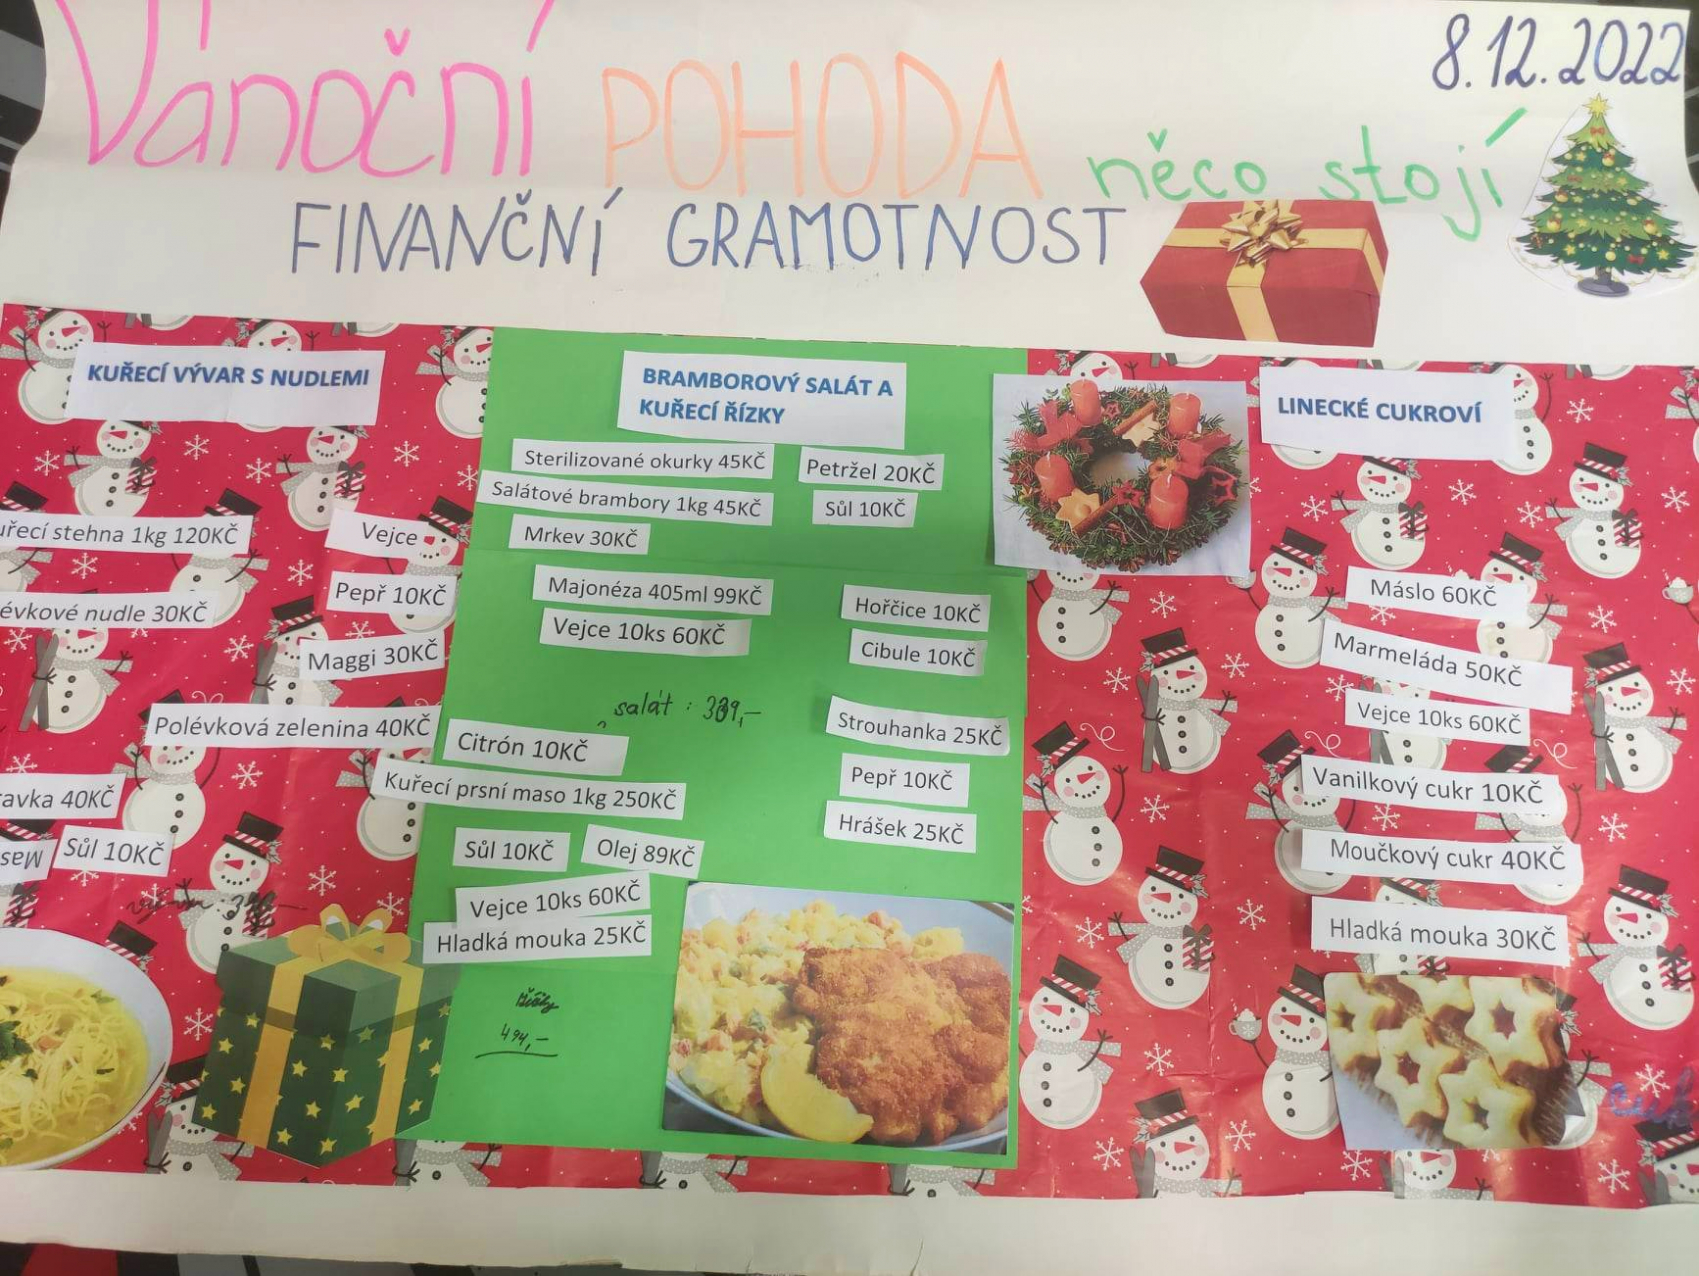 Vánoční POHODA něco stojí
8.12.2022
FINANČNÍ GRAMOTNOST
KUŘECÍ VÝVAR S NUDLEMI
uřecí stehna 1kg 120KČ
Vejce
Pepř 10KČ
évkové nudle 30KČ
Maggi 30KČ
Polévková zelenina 40KČ
ravka 40KČ
Sůl 10KČ
BRAMBOROVÝ SALÁT A
KUŘECÍ ŘÍZKY
Sterilizované okurky 45KČ
Petržel 20KČ
Salátové brambory 1kg 45KČ
Sůl 10KČ
Mrkev 30KČ
Majonéza 405ml 99KČ
Hořčice 10KČ
Vejce 10ks 60KČ
Cibule 10KČ
salát :
Strouhanka 25KČ
Citrón 10KČ
Pepř 10KČ
Kuřecí prsní maso 1kg 250KČ
Hrášek 25KČ
Sůl 10KČ
Olej 89KČ
Vejce 10ks 60KČ
Hladká mouka 25KČ
494,-
LINECKÉ CUKROVÍ
Máslo 60KČ
Marmeláda 50KČ
Vejce 10ks 60KČ
Vanilkový cukr 10KČ
Moučkový cukr 40KČ
Hladká mouka 30KČ